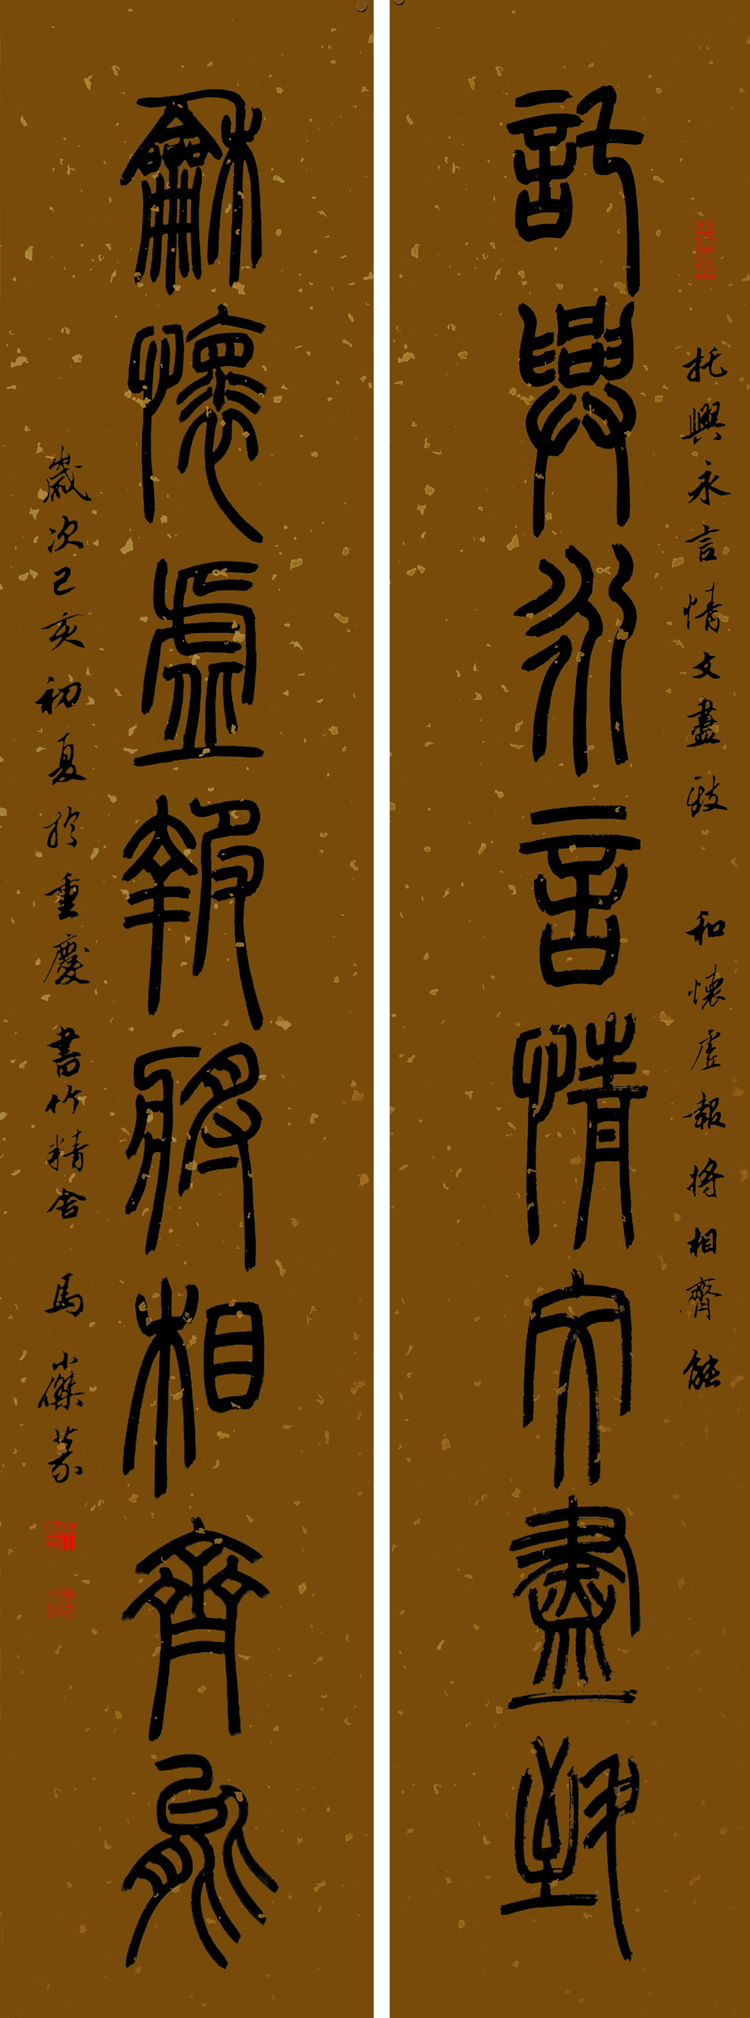 托興永言情文盡致 和懷虛報將相齊能
託興永言情文盡致
龢懷虛報將相齊能
歲次己亥初夏於重慶 書竹精舍 馬小傑篆